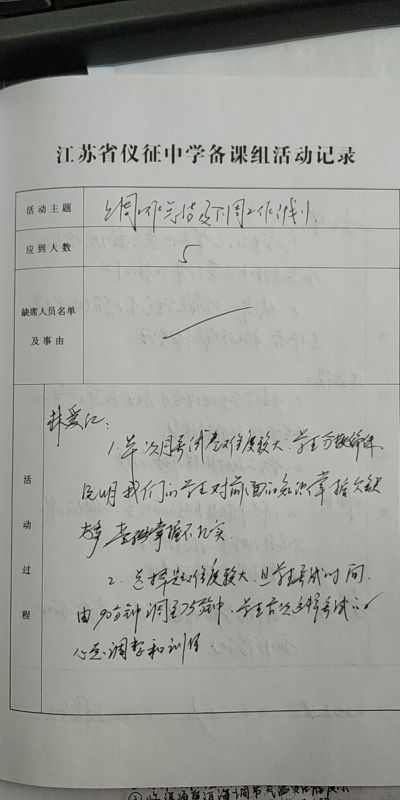 江苏省仪征中学备课组活动记录
活动主题 上周工作总结及下周工作计划.
应到人数 5
缺席人员名单
及事由
活动过程
林爱仁:
1. 本次月考试卷难度较大. 学生分数偏低,
说明我们的学生对前面的知识掌握欠缺
基础掌握不扎实.
2. 选择题难度较大, 且学生考试时间.
由90分钟调至75分钟, 学生首次选择考试
心态调整和训练